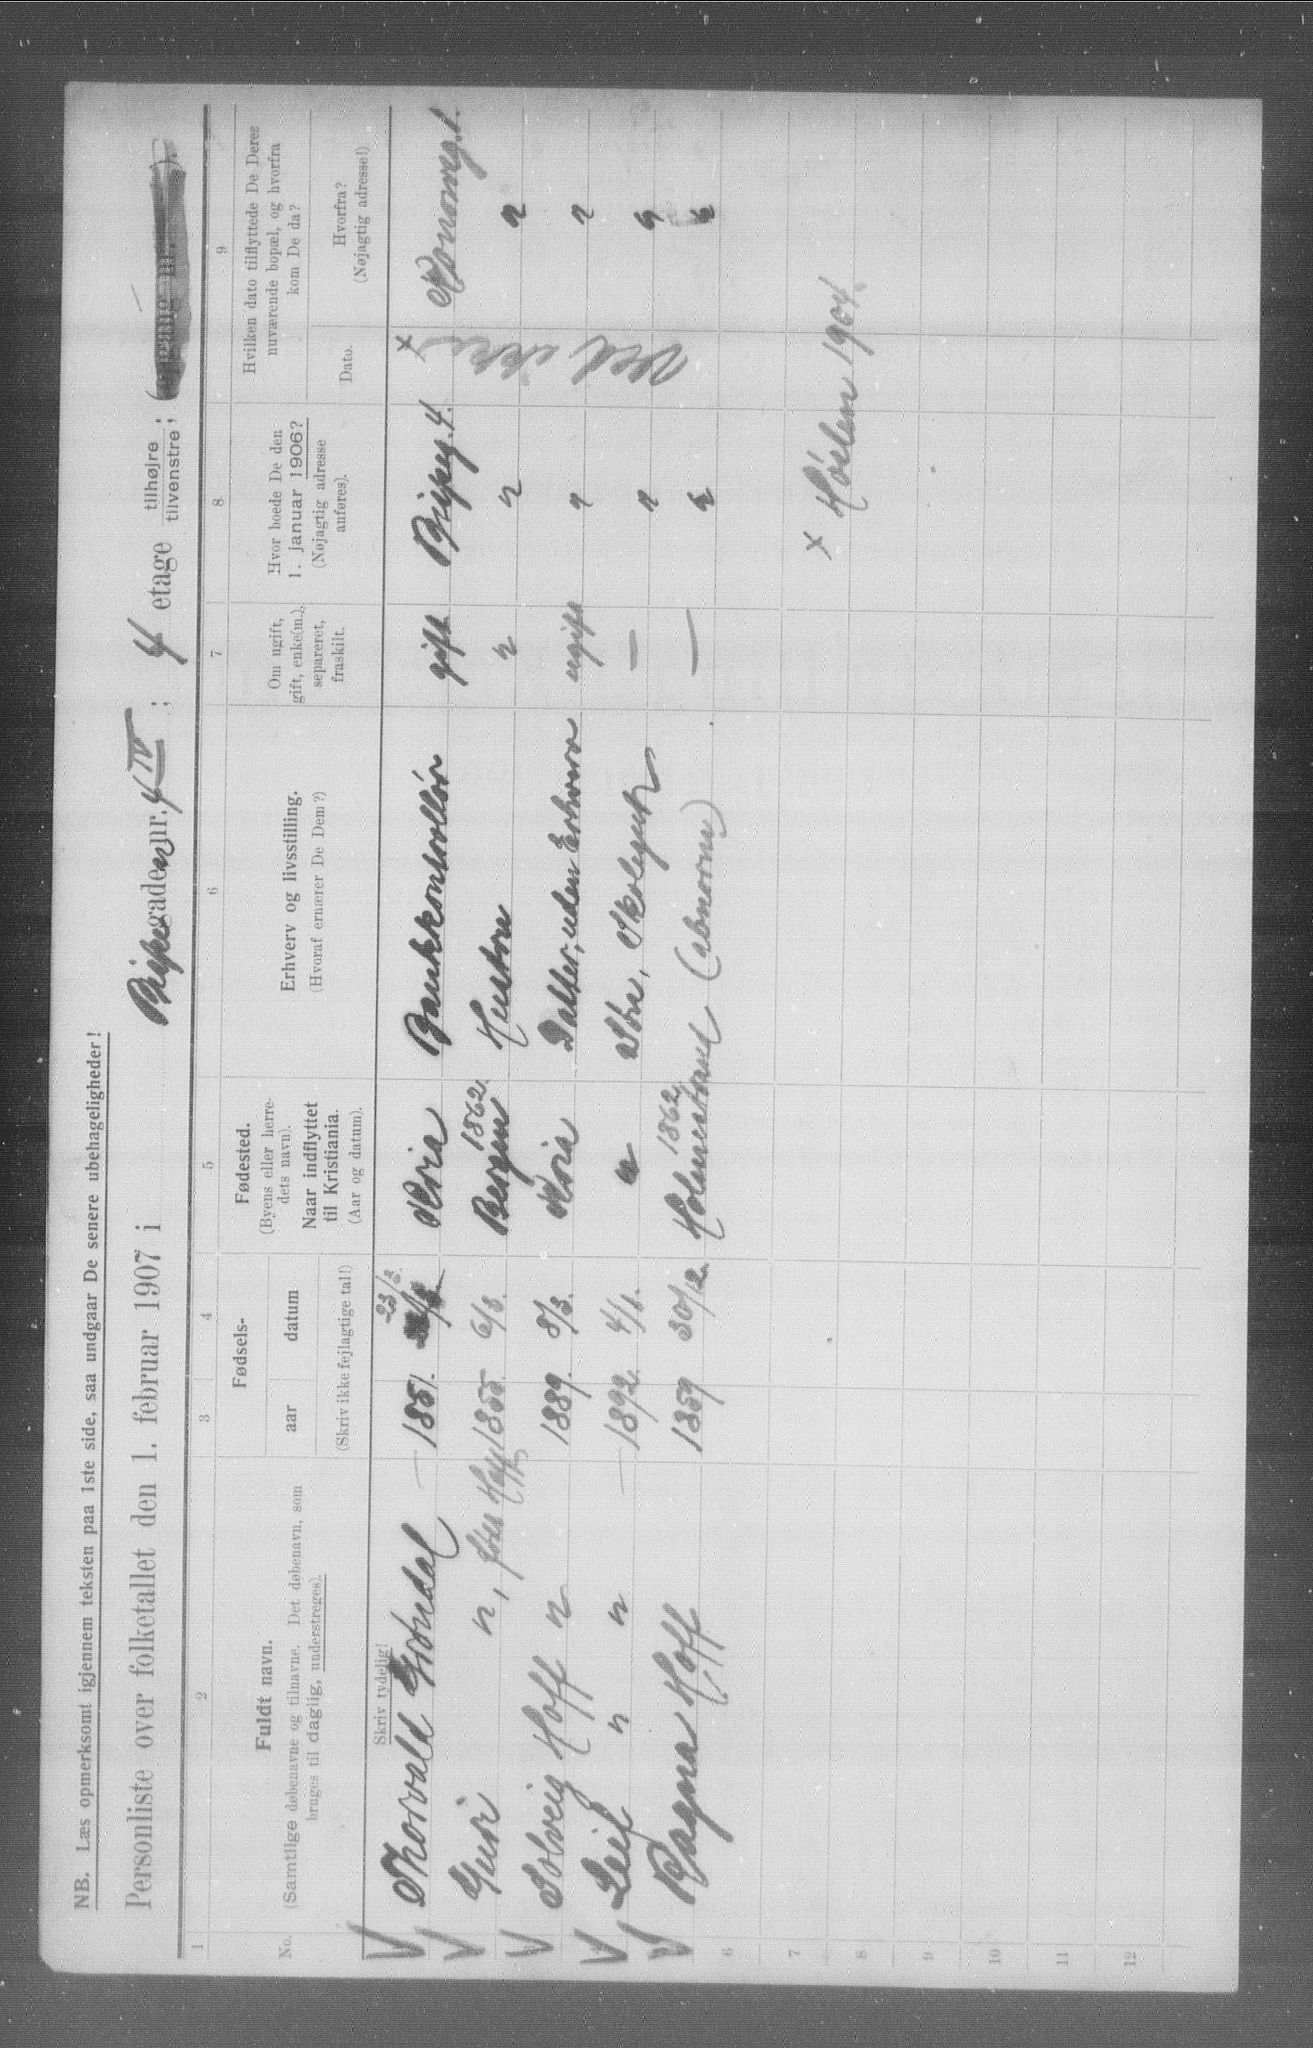 NB. Læs opmerksomt igjennem teksten paa 1ste side, saa undgaar De senere ubehageligheder!
Personliste over folketallet den 1. februar 1907 i gaden nr. 4 IV ; 4 etage tilhøjre tilvenstre ; (opgang nr. ).
1 2 3 4 5 6 7 8 9
No.
Fuldt navn.
(Samtlige døbenavne og tilnavne. Det døbenavn, som
bruges til daglig, understreges).
Fødsels-
aar datum
(Skriv ikke fejlagtige tal!)
Fødested.
(Byens eller herre-
dets navn).
Naar indflyttet
til Kristiania.
(Aar og datum).
Erhverv og livsstilling.
(Hvoraf ernærer De Dem?)
Om ugift,
gift, enke(m.),
separeret,
fraskilt.
Hvor boede De den
1. januar 1906?
(Nøjagtig adresse
anføres).
Hvilken dato tilflyttede De Deres
nuværende bopæl, og hvorfra
kom De da?
Dato.
Hvorfra?
(Nøjagtig adresse!)
Skriv tydelig!
V Thorvald 1851. 23/3. Kria Bankkontrollør gift 4. x
V " , født Hoff 1855. 6/3. Bergen 1862. Hustru " " "
V Solveig Hoff " 1889. 8/3. Kria Datter, uden Erhverv ugift " "
V Leif " " 1892. 4/1. " Søn, — " "
V Ragna Hoff 1859 30/12. Holmestrand 1862 (abnorm) — " "
x 1904.
6
7
8
9
10
11
12